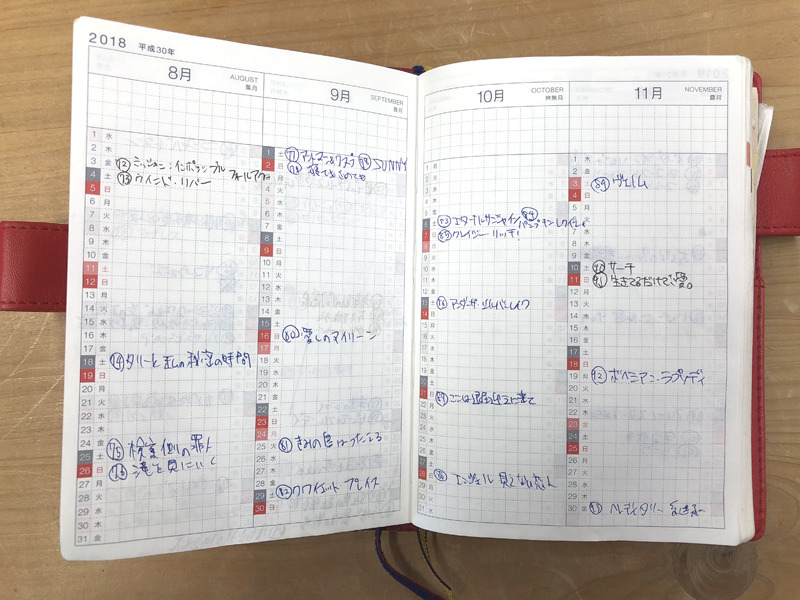 2018 平成30年
8月 AUGUST 葉月
1 水
2 木
3 金 72 ミッション:インポッシブル フォールアウト
4 土 73 ウインド・リバー
5 日
6 月
7 火
8 水
9 木
10 金
11 土
12 日
13 月
14 火
15 水
16 木
17 金
18 土 74 タリーと私の秘密の時間
19 日
20 月
21 火
22 水
23 木
24 金
25 土 75 検察側の罪人
26 日 76 滝を見にいく
27 月
28 火
29 水
30 木
31 金
9月 SEPTEMBER 長月
1 土 77 アントマン&ワスプ 79 SUNNY
2 日 78 寝てもさめても
3 月
4 火
5 水
6 木
7 金
8 土
9 日
10 月
11 火
12 水
13 木
14 金
15 土
16 日 80 愛しのアイリーン
17 月
18 火
19 水
20 木
21 金
22 土
23 日
24 月
25 火 81 きみの鳥はうたえる
26 水
27 木
28 金
29 土 82 クワイエット プレイス
30 日
10月 OCTOBER 神無月
1 月
2 火
3 水
4 木
5 金
6 土 83 エターナルサンシャイン 84
7 日 85 クレイジー・リッチ!
8 月
9 火
10 水
11 木
12 金
13 土 86 アンダー・ザ・シルバーレイク
14 日
15 月
16 火
17 水
18 木
19 金
20 土
21 日 87 ここは退屈迎えに来て
22 月
23 火
24 水
25 木
26 金
27 土
28 日 88 エンジェル 見えない恋人
29 月
30 火
31 水
11月 NOVEMBER 霜月
1 木
2 金
3 土 89 ヴェノム
4 日
5 月
6 火
7 水
8 木
9 金
10 土 90 サーチ
11 日 91 生きてるだけで、愛。
12 月
13 火
14 水
15 木
16 金
17 土
18 日
19 月 92 ボヘミアン・ラプソディ
20 火
21 水
22 木
23 金
24 土
25 日
26 月
27 火
28 水
29 木
30 金 93 ヘレディタリー 継承